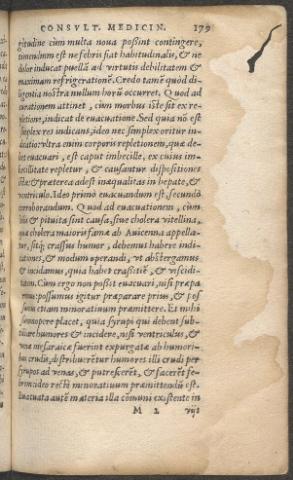 CONSVLT. MEDICIN. 179
gitudine cùm multa noua poßint contingere,
timendum est ne febris fiat habitudinalis, & ne
dolor inducat puellã ad virtutis debilitatem &
maximam refrigerationẽ. Credo tamẽ quòd di-
ligentia nostra nullum horũ occurret. Quod ad
curationem attinet, cùm morbus iste sit ex re-
pletione, indicat de euacuatione. Sed quia nõ est
simplex res indicans, ideo nec simplex oritur in-
dicatio: vltra enim corporis repletionem, quæ de-
bet euacuari, est caput imbecille, ex cuius im-
becillitate repletur, & causantur dispositiones
istæ: & præterea adest inæqualitas in hepate, &
ventriculo. Ideo primò euacuandum est, secundò
corroborandum. Quod ad euacuationem, cùm
bilis & pituita sint causa, siue cholera vitellina,
quæ cholera maior is famæ ab Auicenna appella-
tur, sitq́; crassus humor, debemus habere indi-
cationes, & modum operandi, vt abstergamus
& incidamus, quia habet crassitiẽ, & viscidi-
tatem. Cùm ergo non poßit euacuari, nisi præpa
remus: possumus igitur præparare prius, & pos
sumus etiam minoratiuum præmittere. Et mihi
summopere placet, quia syrupi qui debent sub-
tiliare humores & incidere, nisi ventriculus, &
venæ mesaraicæ fuerint expurgatæ ab humori-
bus crudis, distribuerẽtur humores illi crudi per
syrupos ad venas, & putrescerẽt, & facerẽt fe-
brim: ideo rectè minoratiuum præmittendũ est.
Euacuata autẽ materia illa cõmuni existente in
M 2 vijs